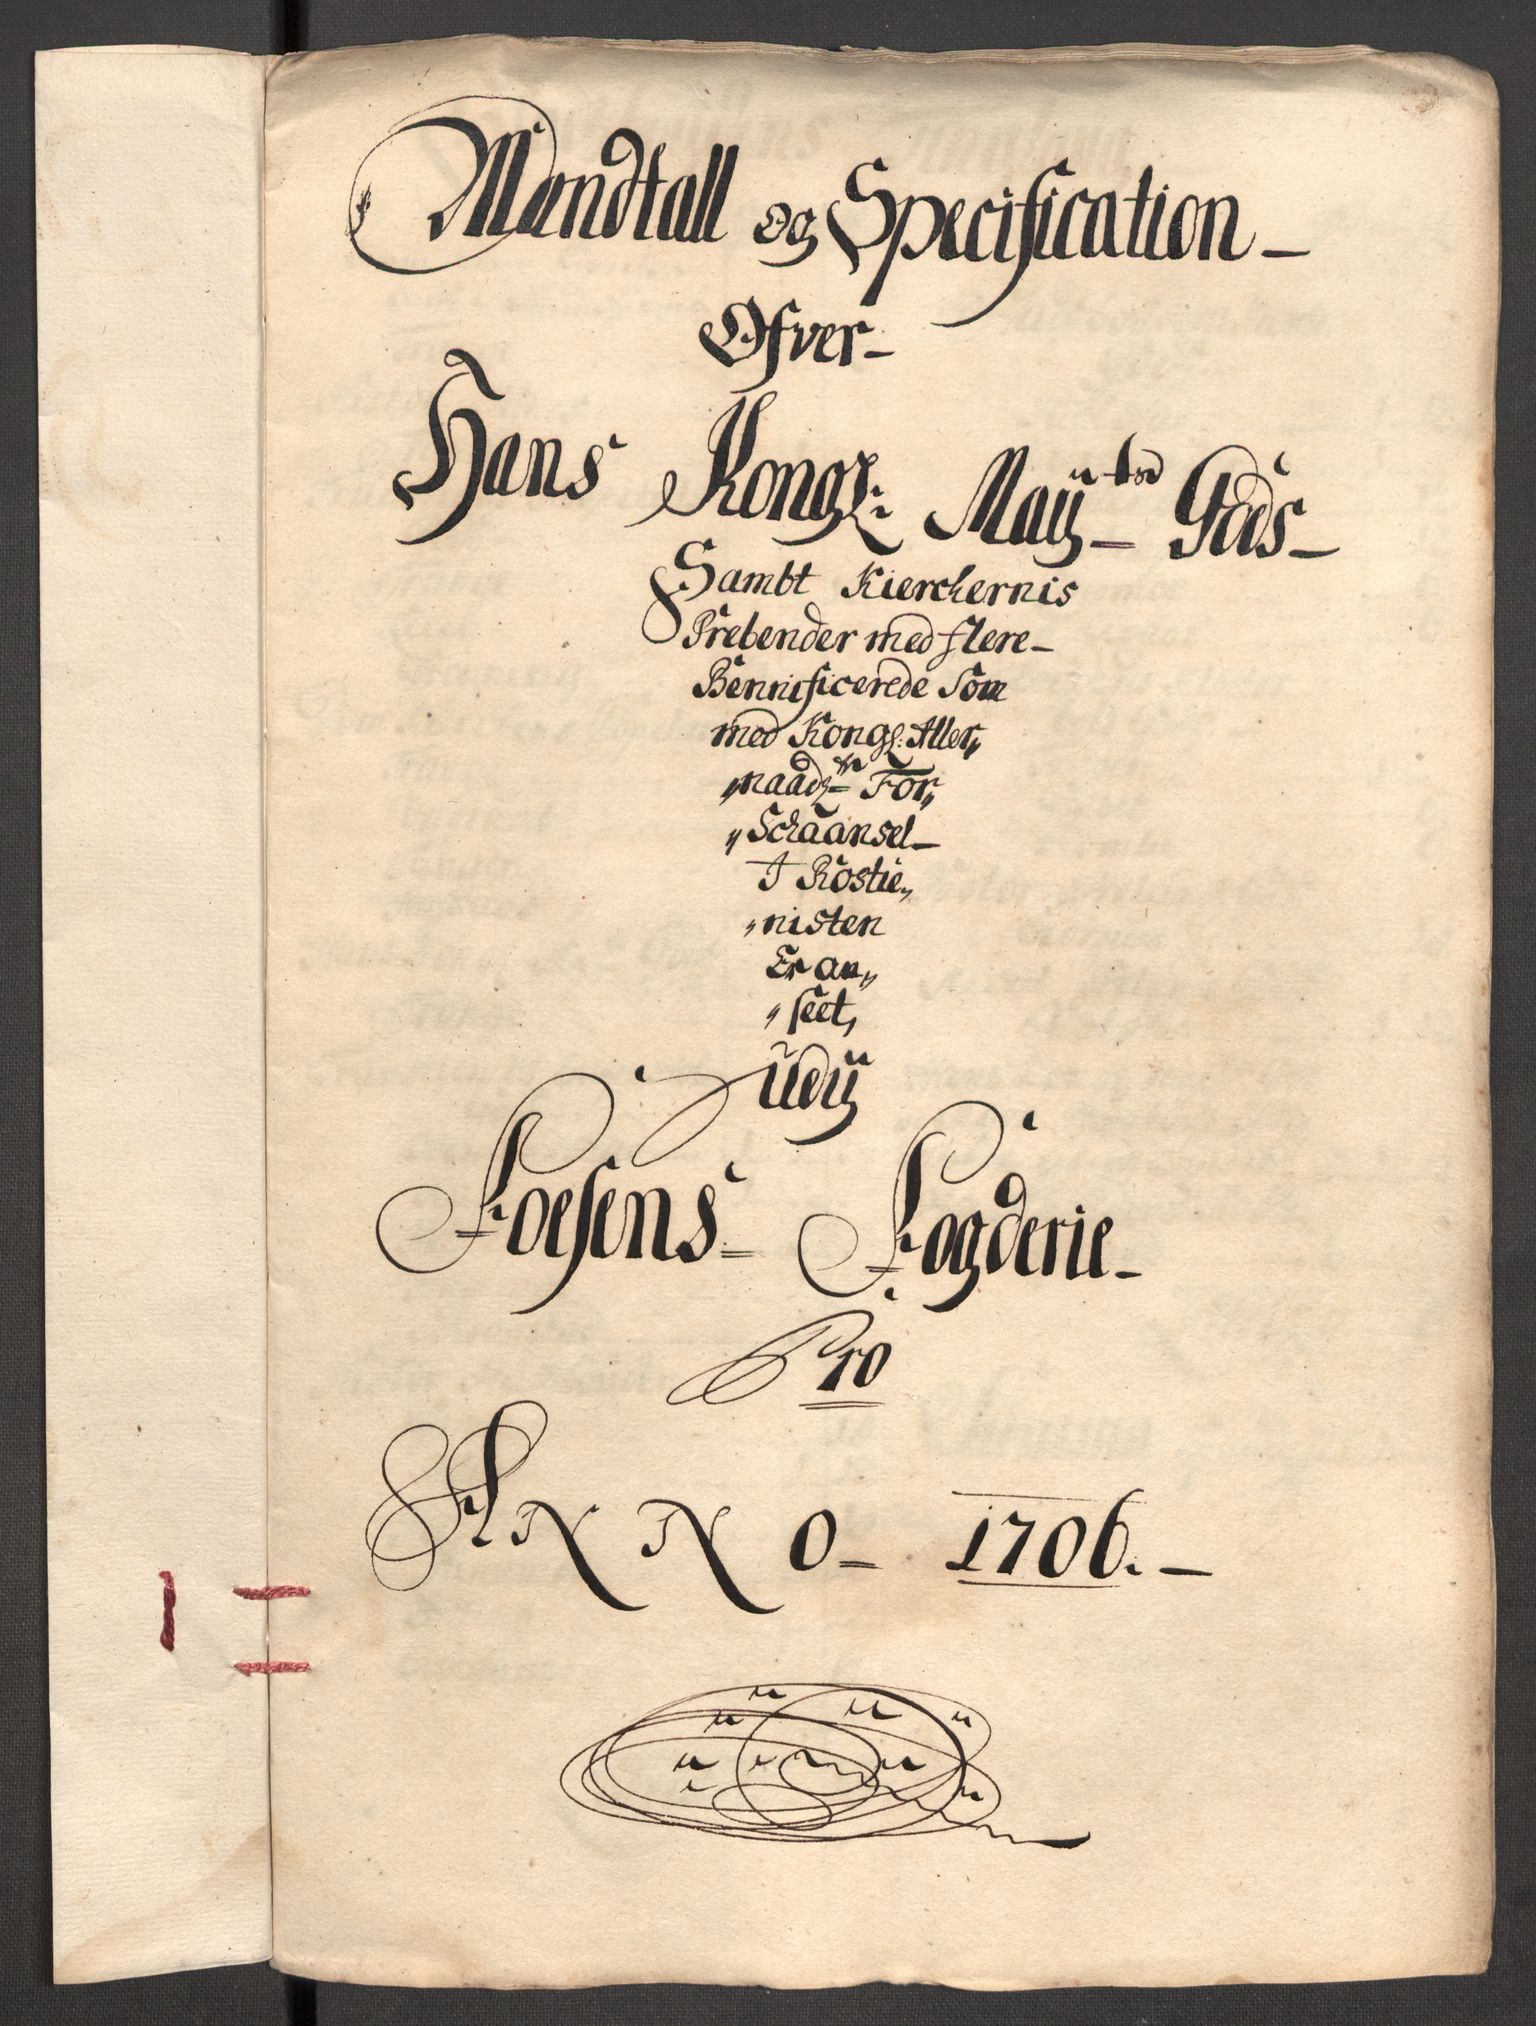 Mandtall og Specification
Ofver
Hans Kongl: Maÿts Gods
Sambt Kierchernis
Prebender med flere
Bennificerede Som
med Kongl: Aller„
„naadgste For„
„Schaansel
I Rostie„
„nisten
Er an„
„seet,
Udÿ
Foesens Fogderie
Pro
ANNO 1706.